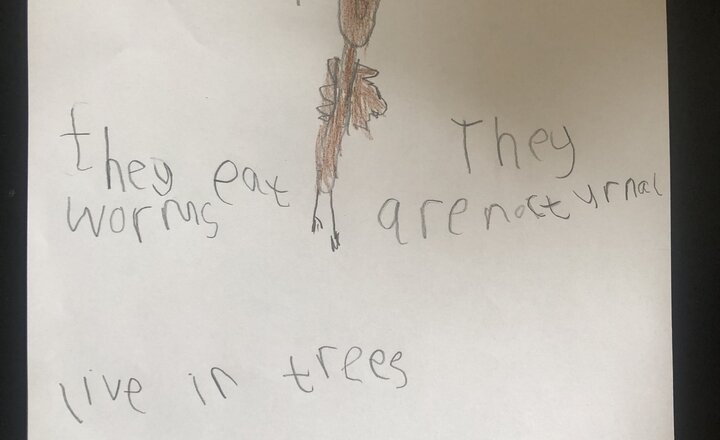 they eat
worms
They
are nocturnal
live in trees